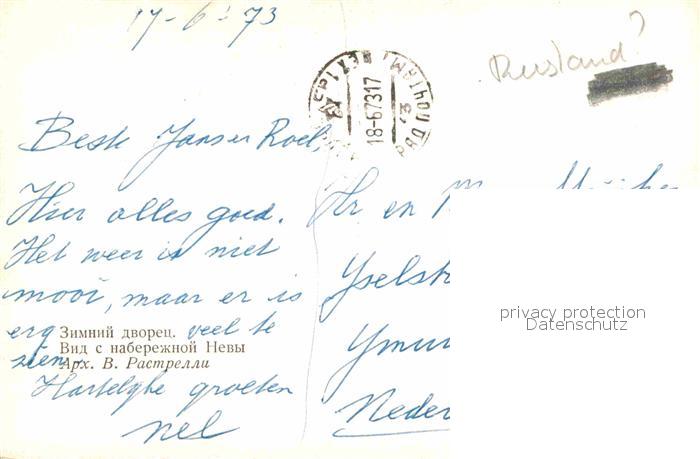 17-6-'73
Rusland?
18-67317
Beste Jans en Roel,
Hier alles goed.
Het weer is niet
mooi, maar er is
erg veel te
zien.
Hartelijke groeten
Nel
Hr en
Yselst
Ymui
Neder
Зимний дворец.
Вид с набережной Невы
Арх. В. Растрелли
privacy protection
Datenschutz